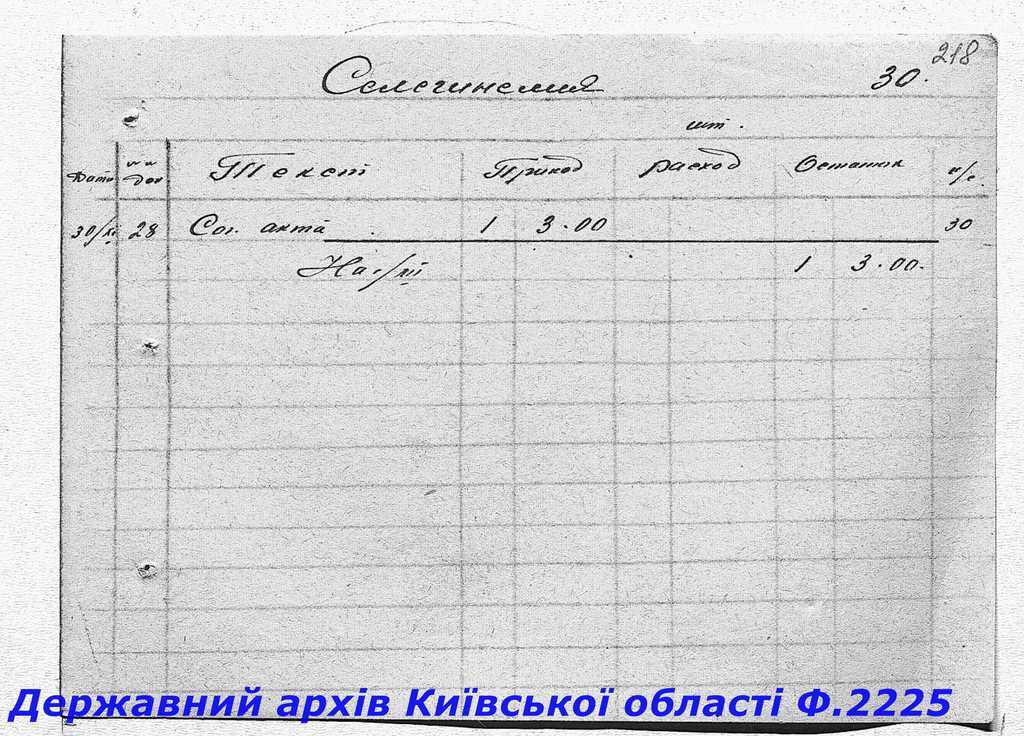 218
30.
шт.
Дата Текст Приход Расход Остаток
28 Сог. акта 1 3.00 30
На 1/XII 1 3.00.
Державний архів Київської області Ф.2225